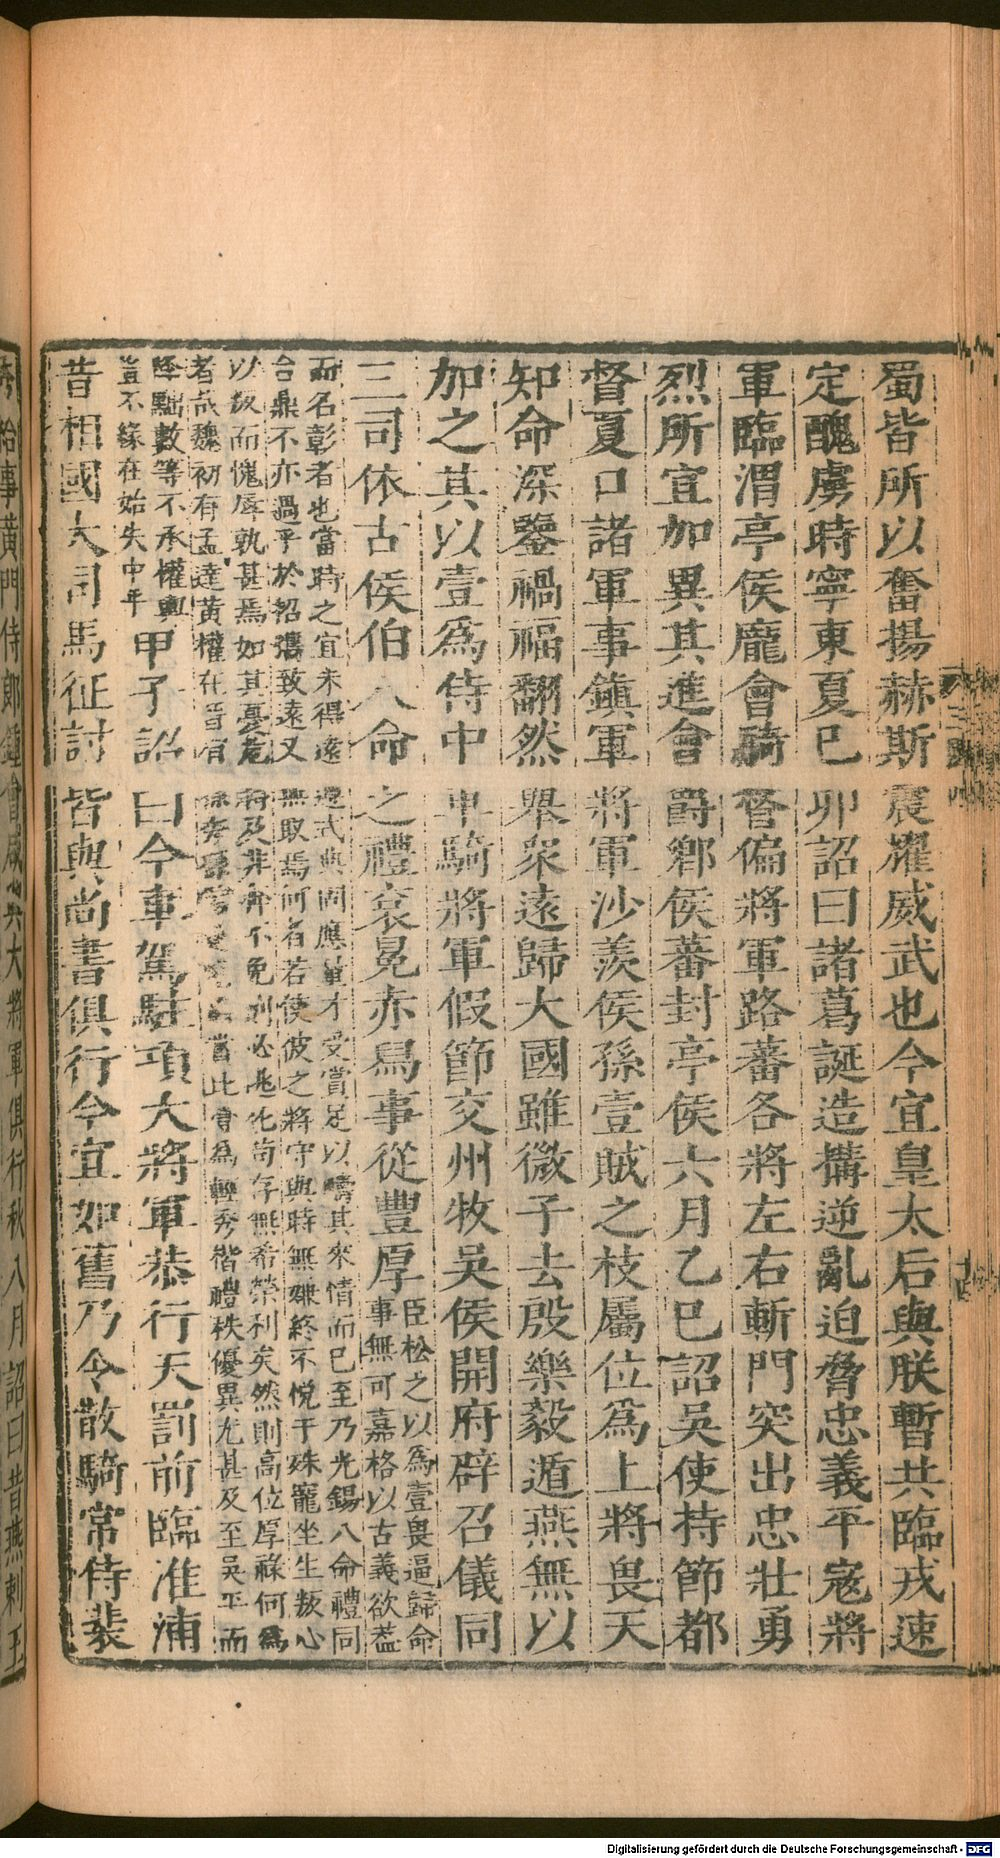 蜀皆所以奮揚赫斯震耀威武也今宜皇太后與朕暫共臨戎速
定醜虜時寧東夏己卯詔曰諸葛誕造搆逆亂迫脅忠義平寇將
軍臨渭亭侯龐會騎督偏將軍路蕃各將左右斬門突出忠壯勇
烈所宜加異其進會爵鄉侯蕃封亭侯六月乙巳詔吳使持節都
督夏口諸軍事鎮軍將軍沙羨侯孫壹賊之枝屬位爲上將畏天
知命深鑒禍福翻然舉衆遠歸大國雖微子去殷樂毅遁燕無以
加之其以壹爲侍中車騎將軍假節交州牧吳侯開府辟召儀同
三司依古侯伯八命之禮袞冕赤舄事從豐厚臣松之以爲壹畏逼歸命
事無可嘉格以古義欲蓋
而名彰者也當時之宜未得遠遵式典固應量才受賞足以疇其來情而已至乃光錫八命禮同
台鼎不亦過乎於招攜致遠又無取焉何者若使彼之將守與時無嫌終不悅于殊寵坐生叛心
以叛而愧辱孰甚焉如其憂危將及非奔不免則必逃死苟存無希榮利矣然則高位厚祿何爲
者哉魏初有孟達黃權在晉有孫秀當此會爲輕秀楷禮秩優異尤甚及至吳平而
降黜數等不承權輿
豈不緣在始失中乎
甲子詔曰今車駕駐項大將軍恭行天罰前臨淮浦
昔相國大司馬征討皆與尚書俱行今宜如舊乃令散騎常侍裴
秀給事黃門侍郎鍾會咸與大將軍俱行秋八月詔曰昔燕剌王
Digitalisierung gefördert durch die Deutsche Forschungsgemeinschaft - DFG